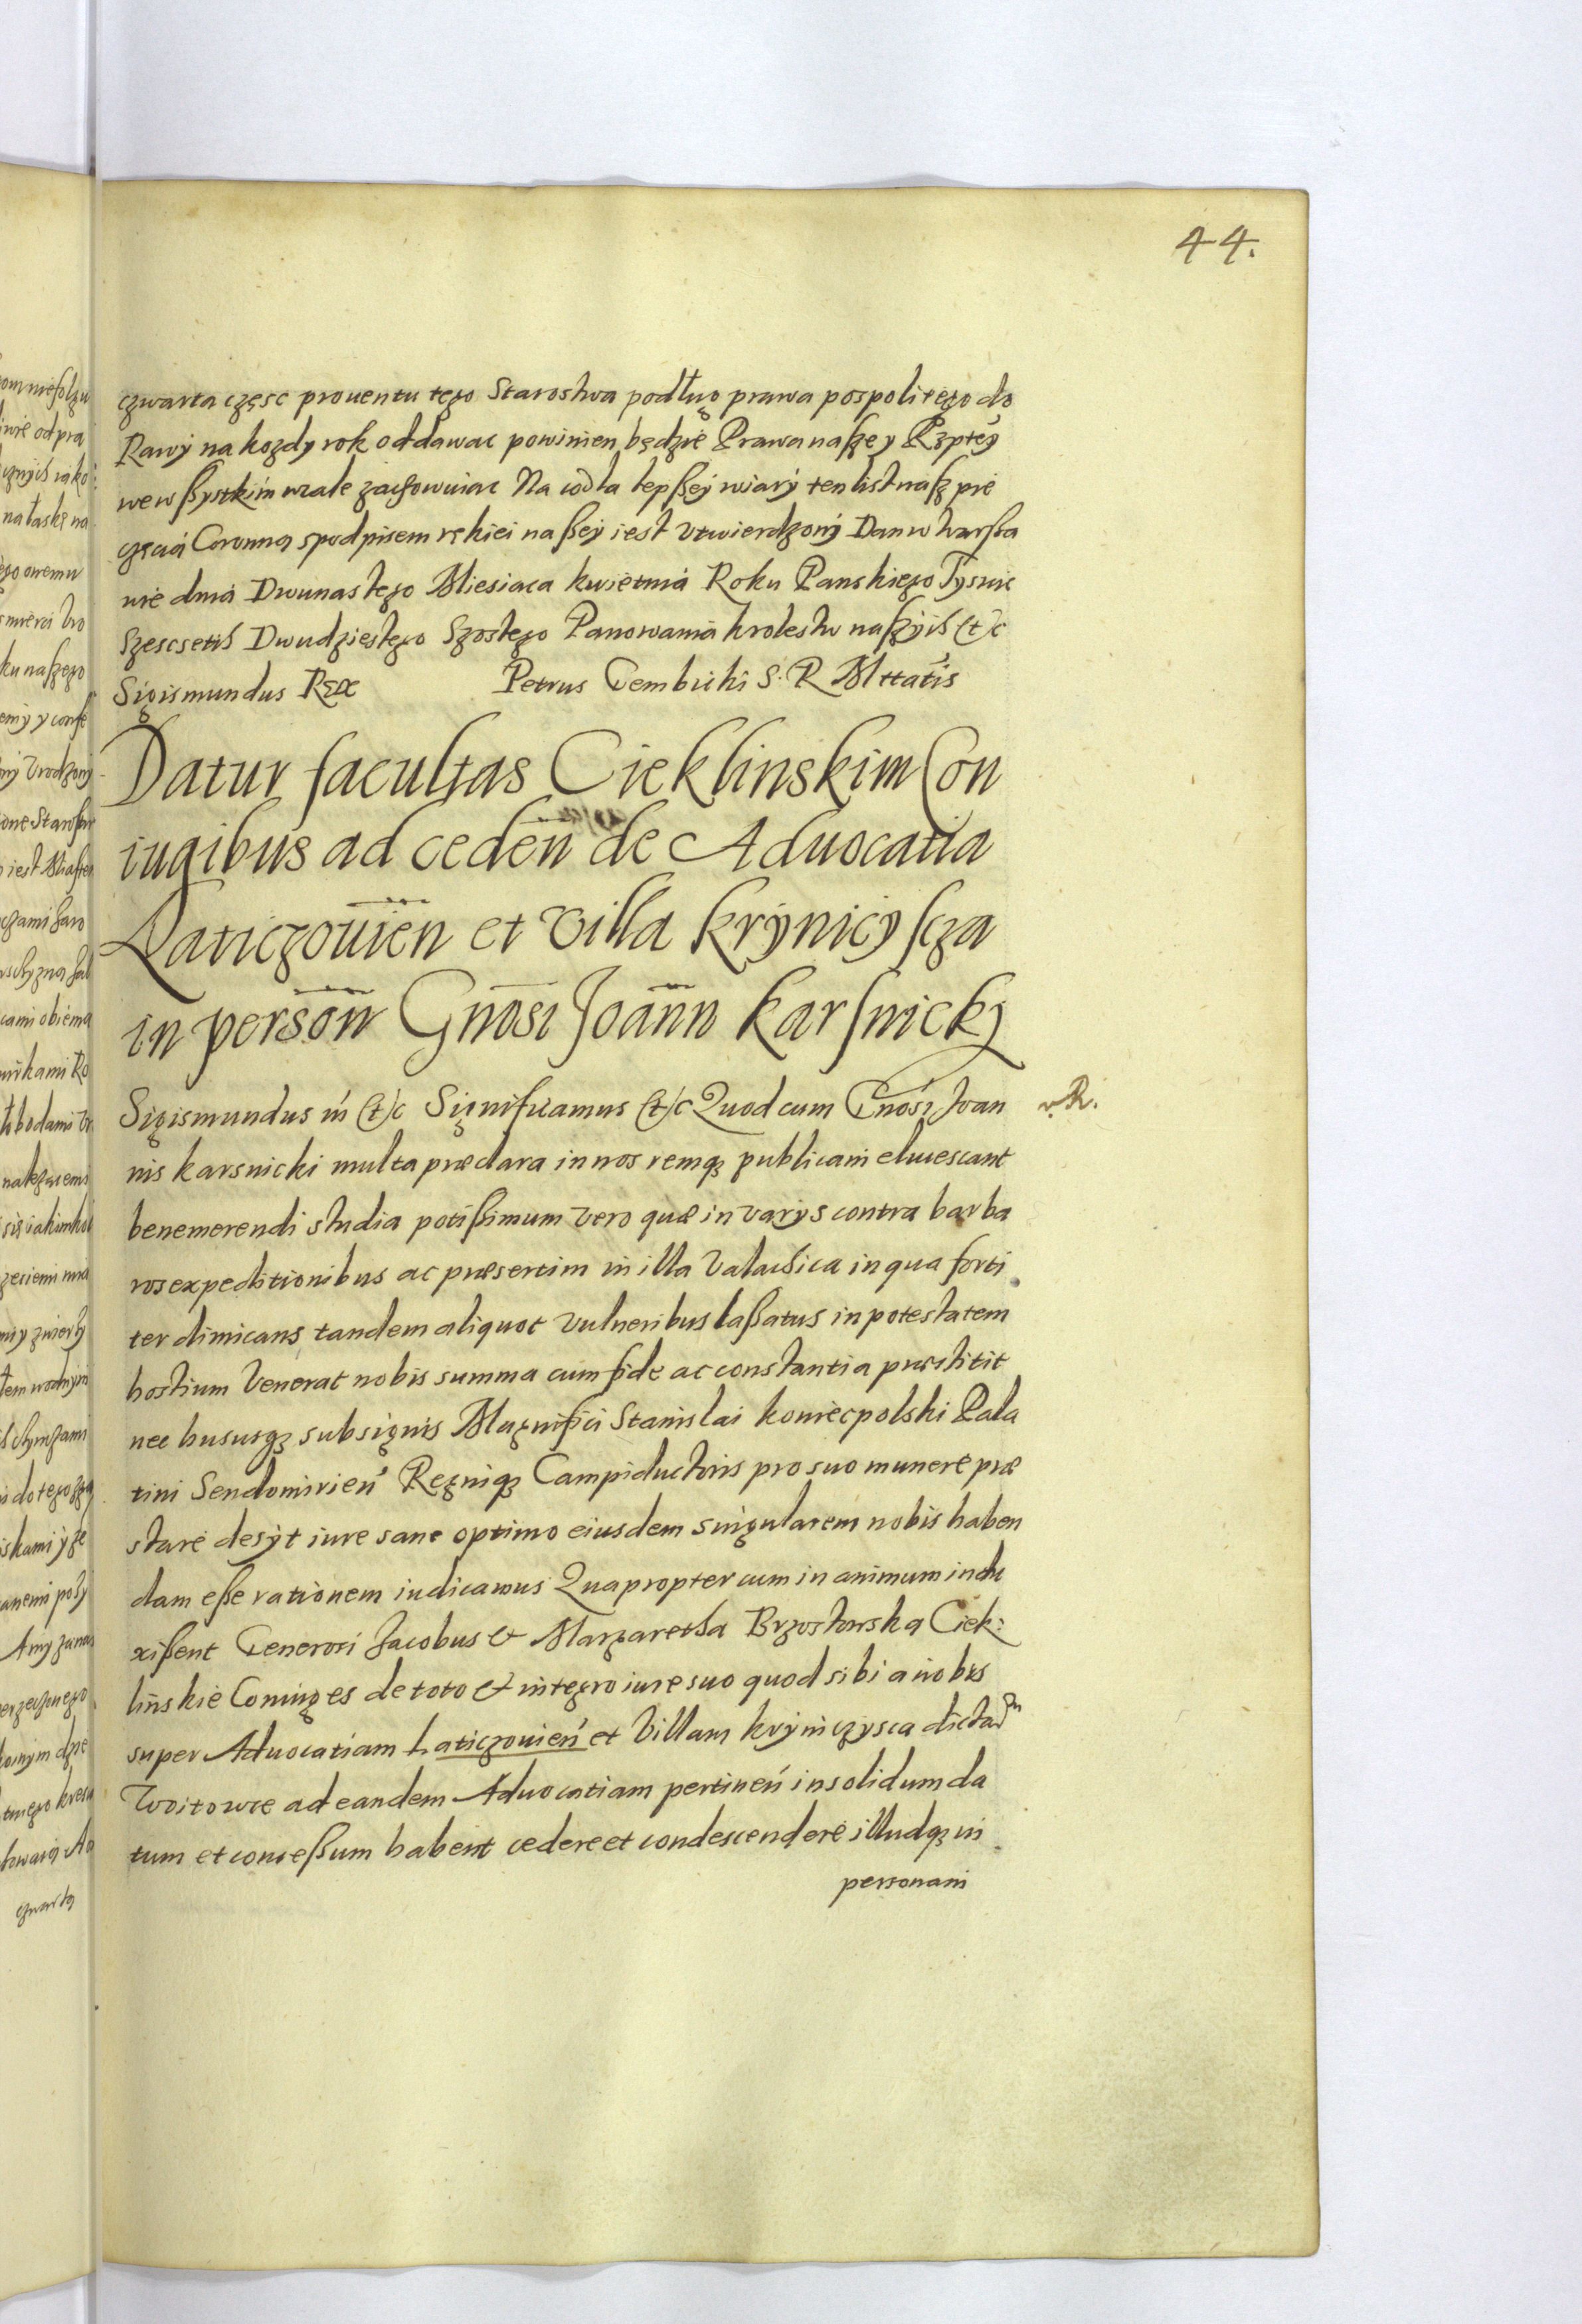 44.
czwarta częsc prouentu tego Starostwa podług prawa pospolitego do
Rawy na kozdy rok oddawac powinien będzie Prawa nasze y Rzptey
we wßystkim wcale zachowuiac Na co dla lepßey wiary ten list nasz pie
częcią Coronną s podpisem rękiei naßey iest vtwierdzony Dan w Warßa
wie dnia Dwunastego Miesiaca kwietnia Roku Panskiego Tysiąc
Szescsetnb Dwudziestego Szostego Panowania krolestw naszych etc
Sigismundus Rex Petrus Gembicki S. R Mttatis
Datur facultas Cieklinskim Con
iugibus ad ceden de Aduocatia
Laticzouien et Villa krynicyscza
in person Gnosi Joann karsnicky
Sigismundus III etc Significamus etc Quod cum Gnosi Joan
nis karsnicki multa præclara in nos remq3 publicam elucescant
benemerendi studia potißimum vero quæ in varys contra barba
ros expeditionibus ac præsertim in illa Valachica in qua forti
ter dimicans tandem aliquot vulneribus laßatus in potestatem
hostium Venerat nobis summa cum fide ac constantia præstitit
nec hucusq3 sub signis Magnifici Stanislai koniecpolski Pala
tini Sendomirien Regniq3 Campiductoris pro suo munere præ
stare desyt iure sane optimo eiusdem singularem nobis haben
dam eße rationem iudicamus Quapropter cum in animum indu
xißent Generosi Jacobus et Margaretha Brzostowska Ciek:
linskie Coniuges de toto et integro iure suo quod sibi a nobis
super Aduocatiam Laticzouien et Villam kryniczysca dictam
Woitowce ad eandem Aduocatiam pertinen in solidum da
tum et conceßum habent cedere et condescendere illudq3 in
personam